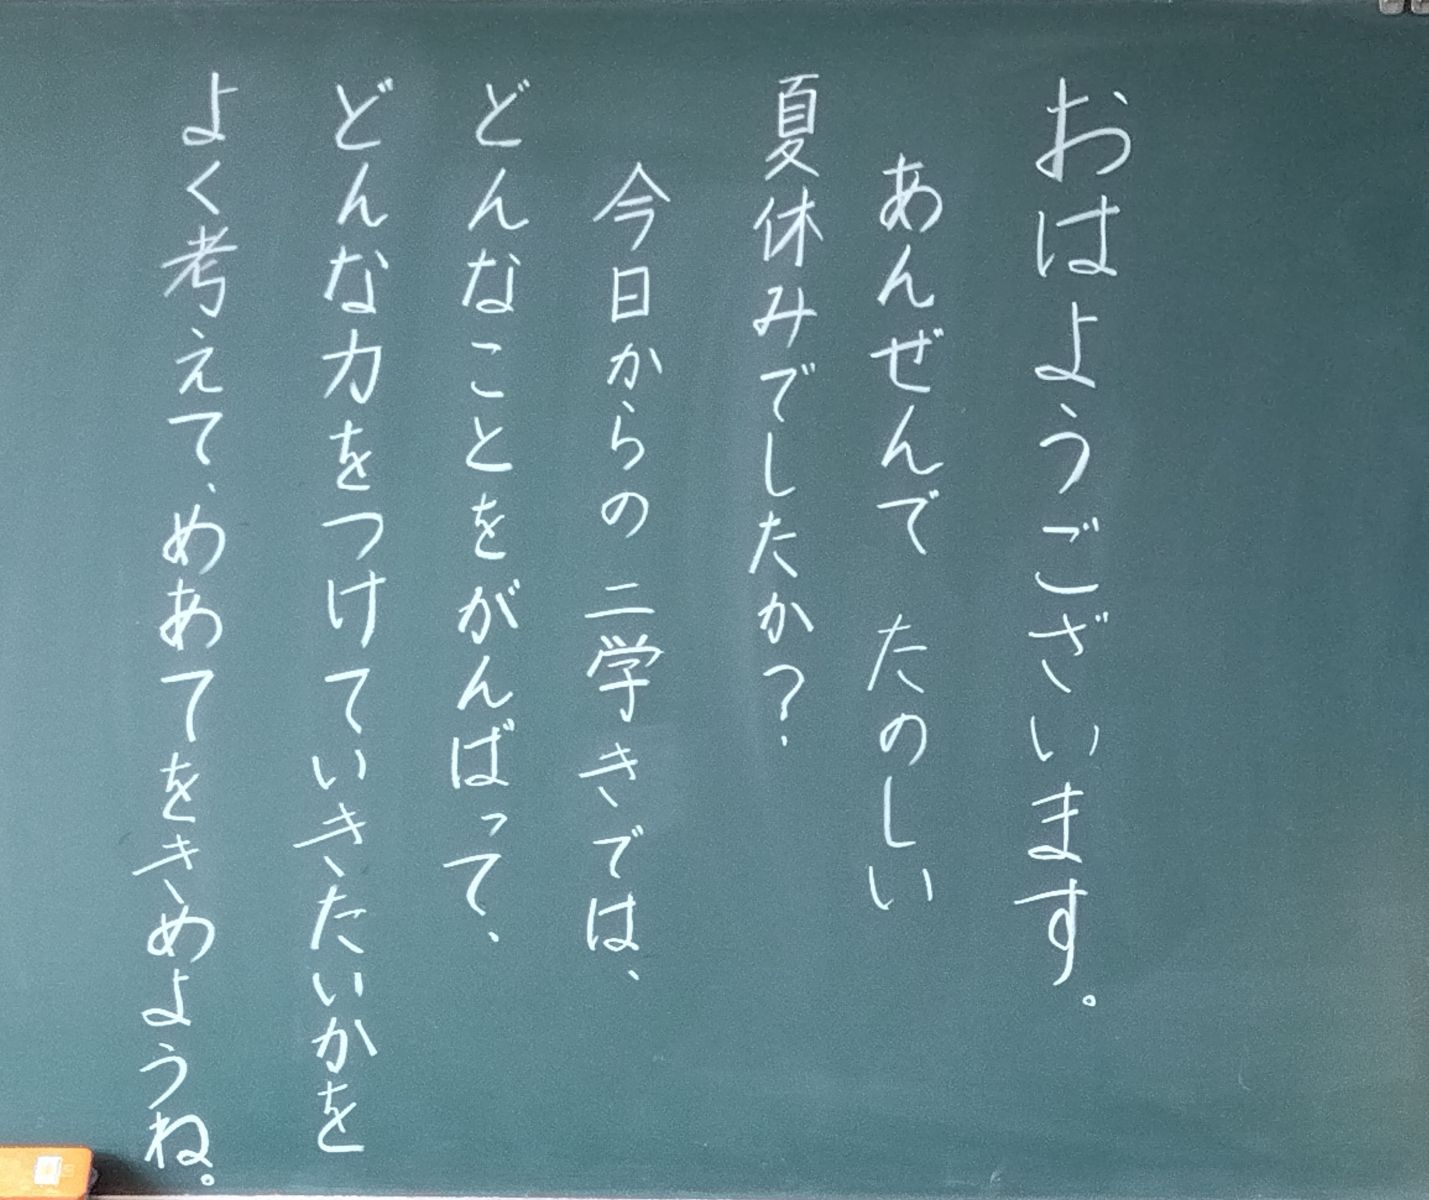 おはようございます。
あんぜんで たのしい
夏休みでしたか?
今日からの二学きでは、
どんなことをがんばって、
どんな力をつけていきたいかを
よく考えて、めあてをきめようね。